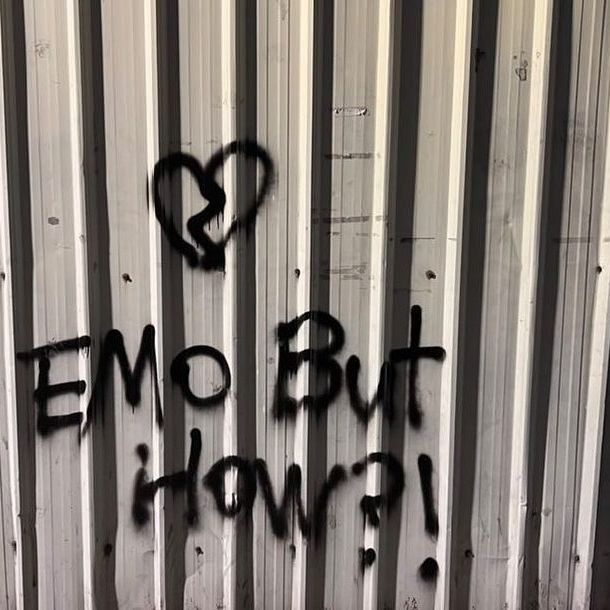 EMO But
How?!